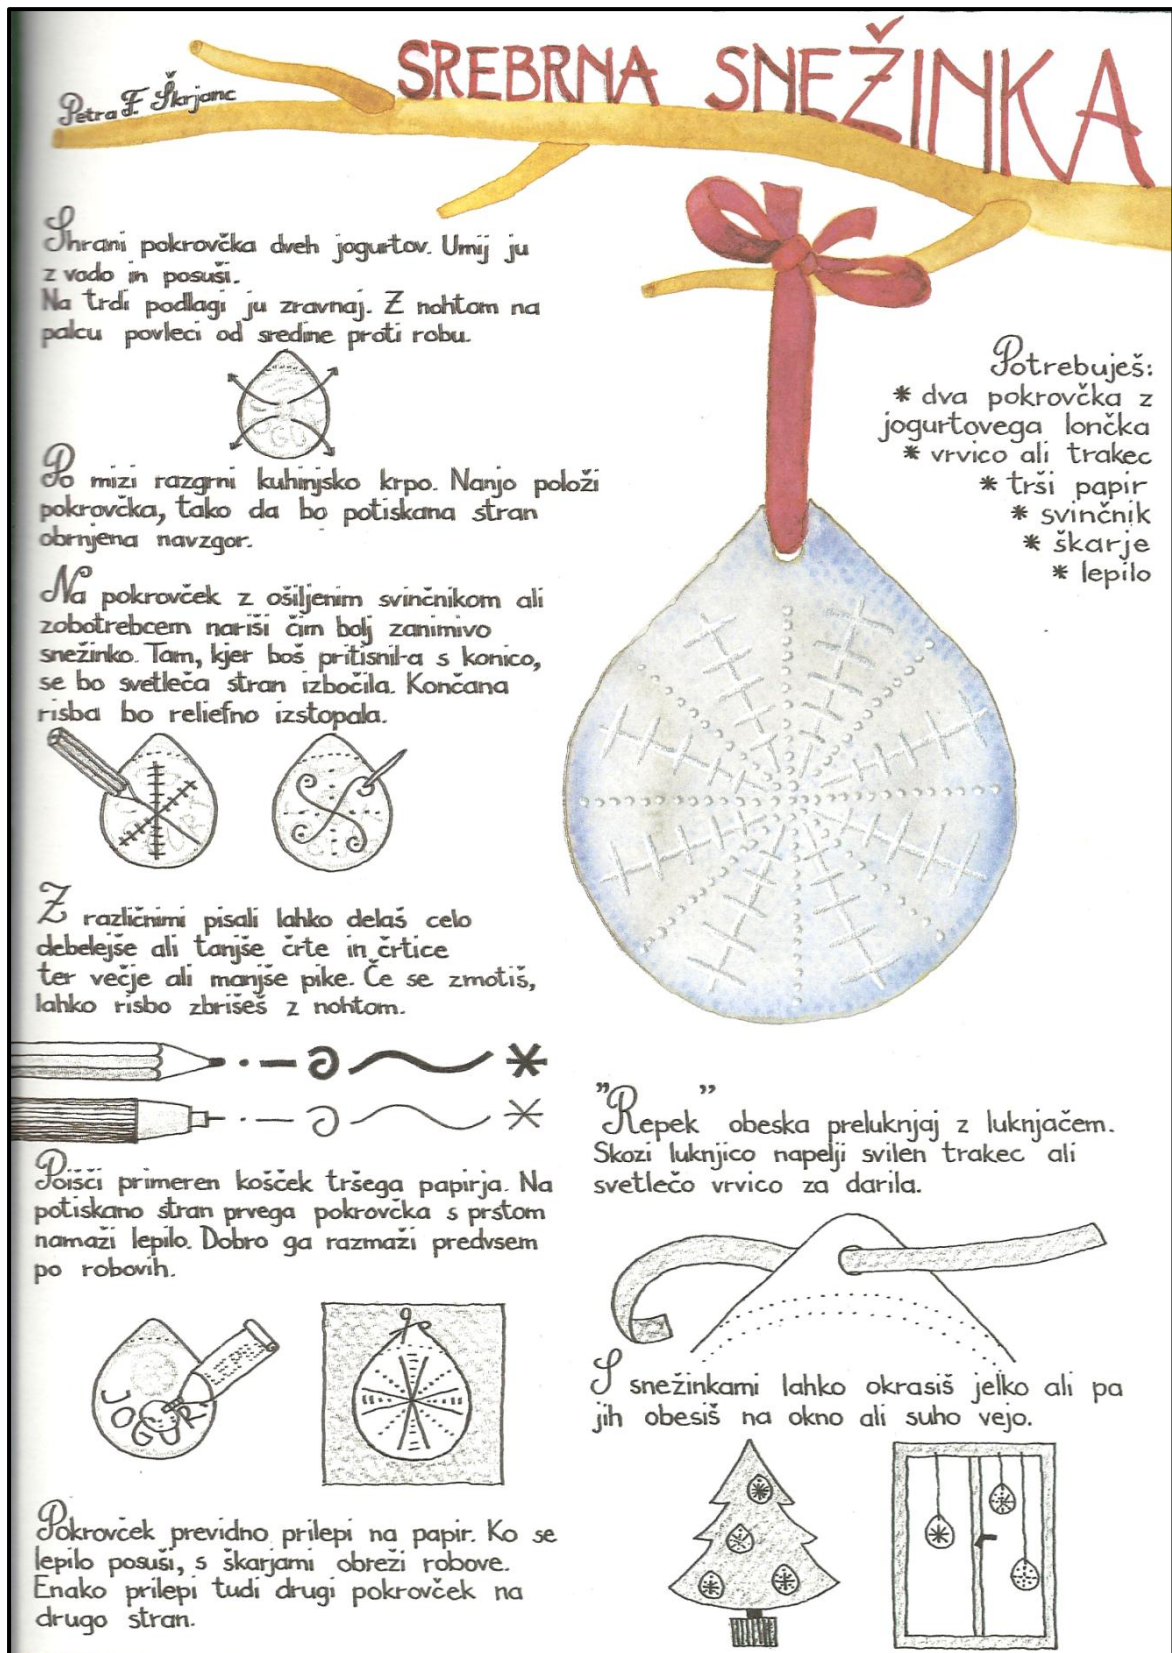 SREBRNA SNEŽINKA
Petra F. Škrjanc
Shrani pokrovčka dveh jogurtov. Umij ju
z vodo in posuši.
Na trdi podlagi ju zravnaj. Z nohtom na
palcu povleci od sredine proti robu.
Po mizi razgrni kuhinjsko krpo. Nanjo položi
pokrovčka, tako da bo potiskana stran
obrnjena navzgor.
Na pokrovček z ošiljenim svinčnikom ali
zobotrebcem nariši čim bolj zanimivo
snežinko. Tam, kjer boš pritisnil-a s konico,
se bo svetleča stran izbočila. Končana
risba bo reliefno izstopala.
Z različnimi pisali lahko delaš celo
debelejše ali tanjše črte in črtice
ter večje ali manjše pike. Če se zmotiš,
lahko risbo zbrišeš z nohtom.
Poišči primeren košček tršega papirja. Na
potiskano stran prvega pokrovčka s prstom
namaži lepilo. Dobro ga razmaži predvsem
po robovih.
Pokrovček previdno prilepi na papir. Ko se
lepilo posuši, s škarjami obreži robove.
Enako prilepi tudi drugi pokrovček na
drugo stran.
Potrebuješ:
* dva pokrovčka z
jogurtovega lončka
* vrvico ali trakec
* trši papir
* svinčnik
* škarje
* lepilo
"Repek" obeska preluknjaj z luknjačem.
Skozi luknjico napelji svilen trakec ali
svetlečo vrvico za darila.
S snežinkami lahko okrasiš jelko ali pa
jih obesiš na okno ali suho vejo.